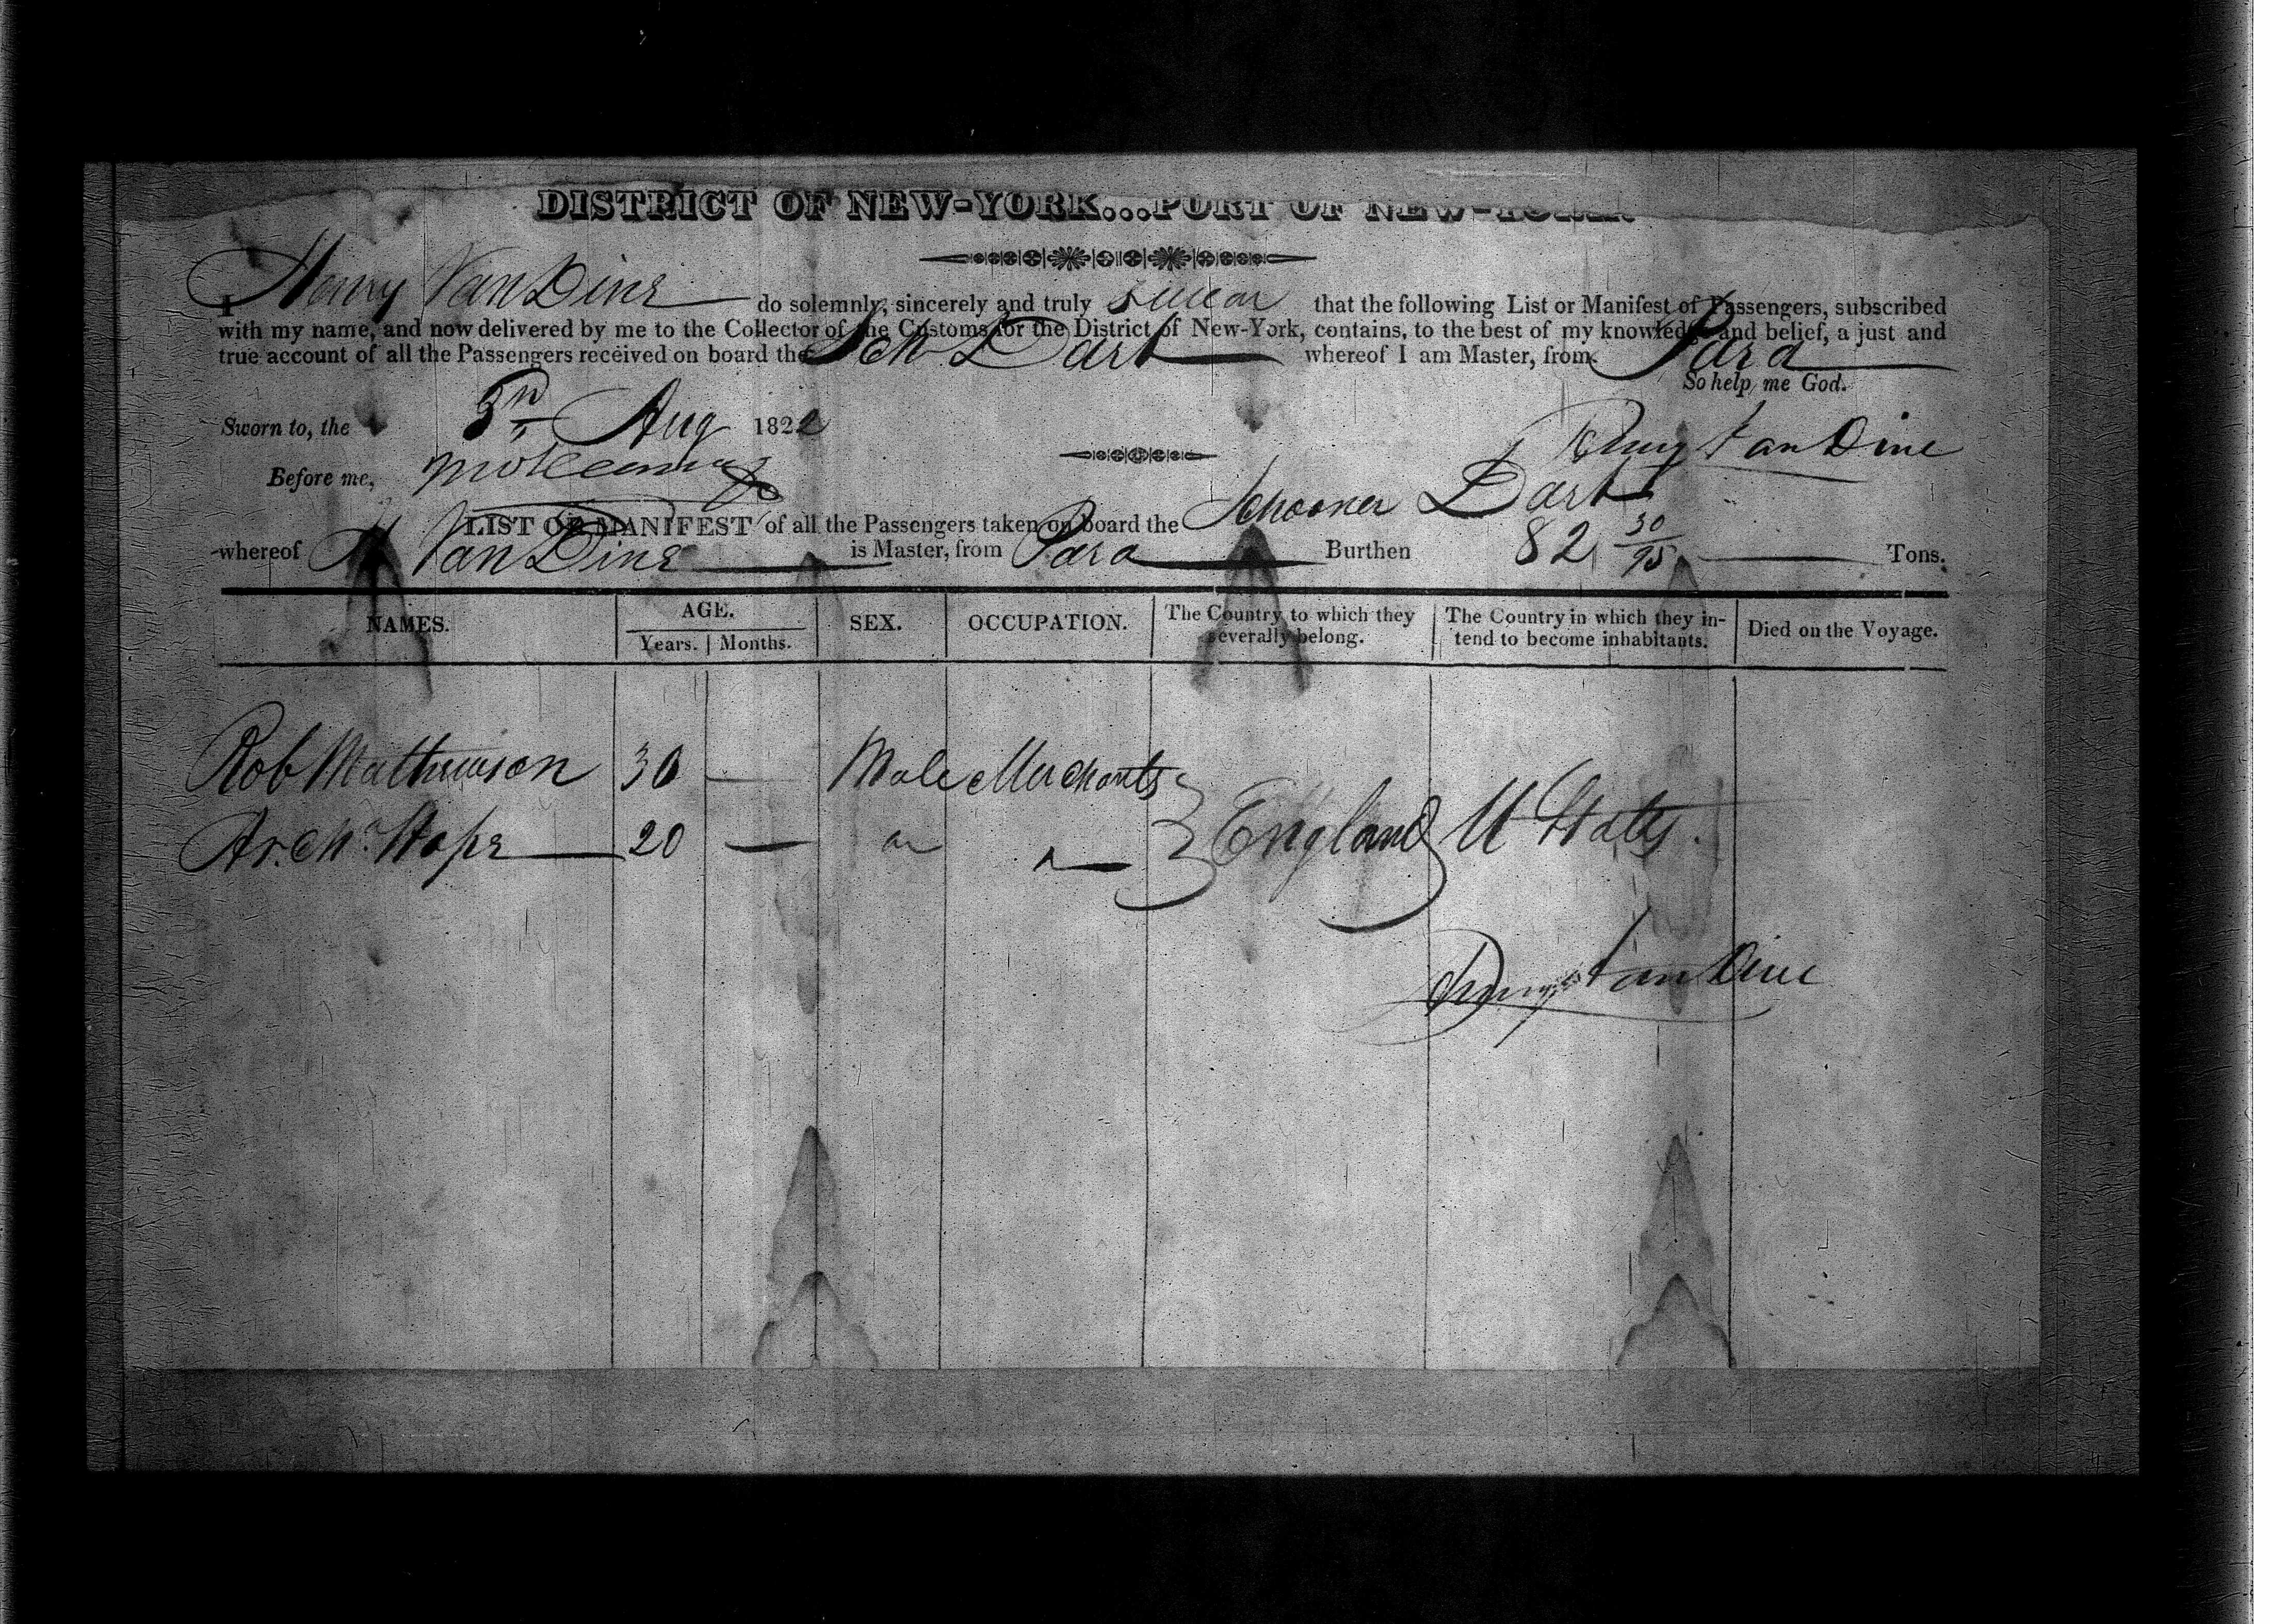 DISTRICT OF NEW-YORK...PORT OF NEW-YORK.
I Henry Van Dine do solemnly, sincerely and truly swear that the following List or Manifest of Passengers, subscribed
with my name, and now delivered by me to the Collector of the Customs for the District of New-York, contains, to the best of my knowledge and belief, a just and
true account of all the Passengers received on board the Sch Dart whereof I am Master, from Para
So help me God.
Sworn to, the Aug 1822
Henry Van Dine
Before me,
LIST OR MANIFEST of all the Passengers taken on board the Schooner Dart
whereof H Van Dine is Master, from Para Burthen 82 30/95 Tons.
NAMES. AGE. SEX. OCCUPATION. The Country to which they severally belong. The Country in which they intend to become inhabitants. Died on the Voyage.
Years. Months.
Rob Mathewson 30 — Male Merchants
England U States.
Archd. Hope 20 —
Henry Van Dine